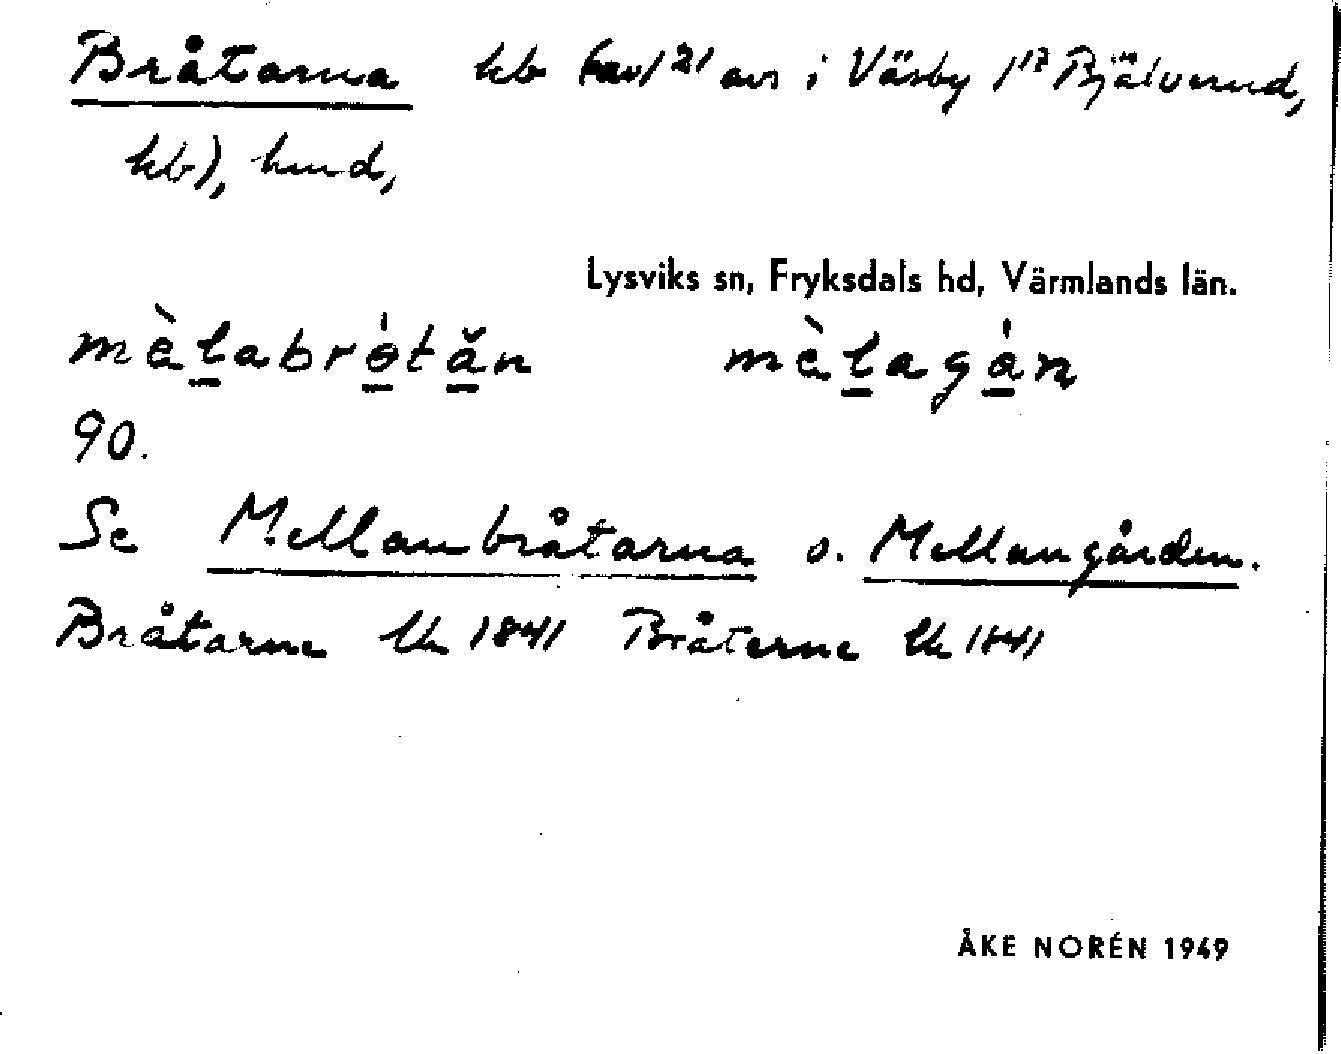 Bråtarna kb (av 1/21 avs i Väsby 1/12 Bjälverud,
kb), hmd,
Lysviks sn, Fryksdals hd, Värmlands län.
mèlabrótăn mèlagán
90.
Se Mellanbråtarna o. Mellangården.
Bråtarne lk 1841 Bråterne lk 1841
ÅKE NORÉN 1949